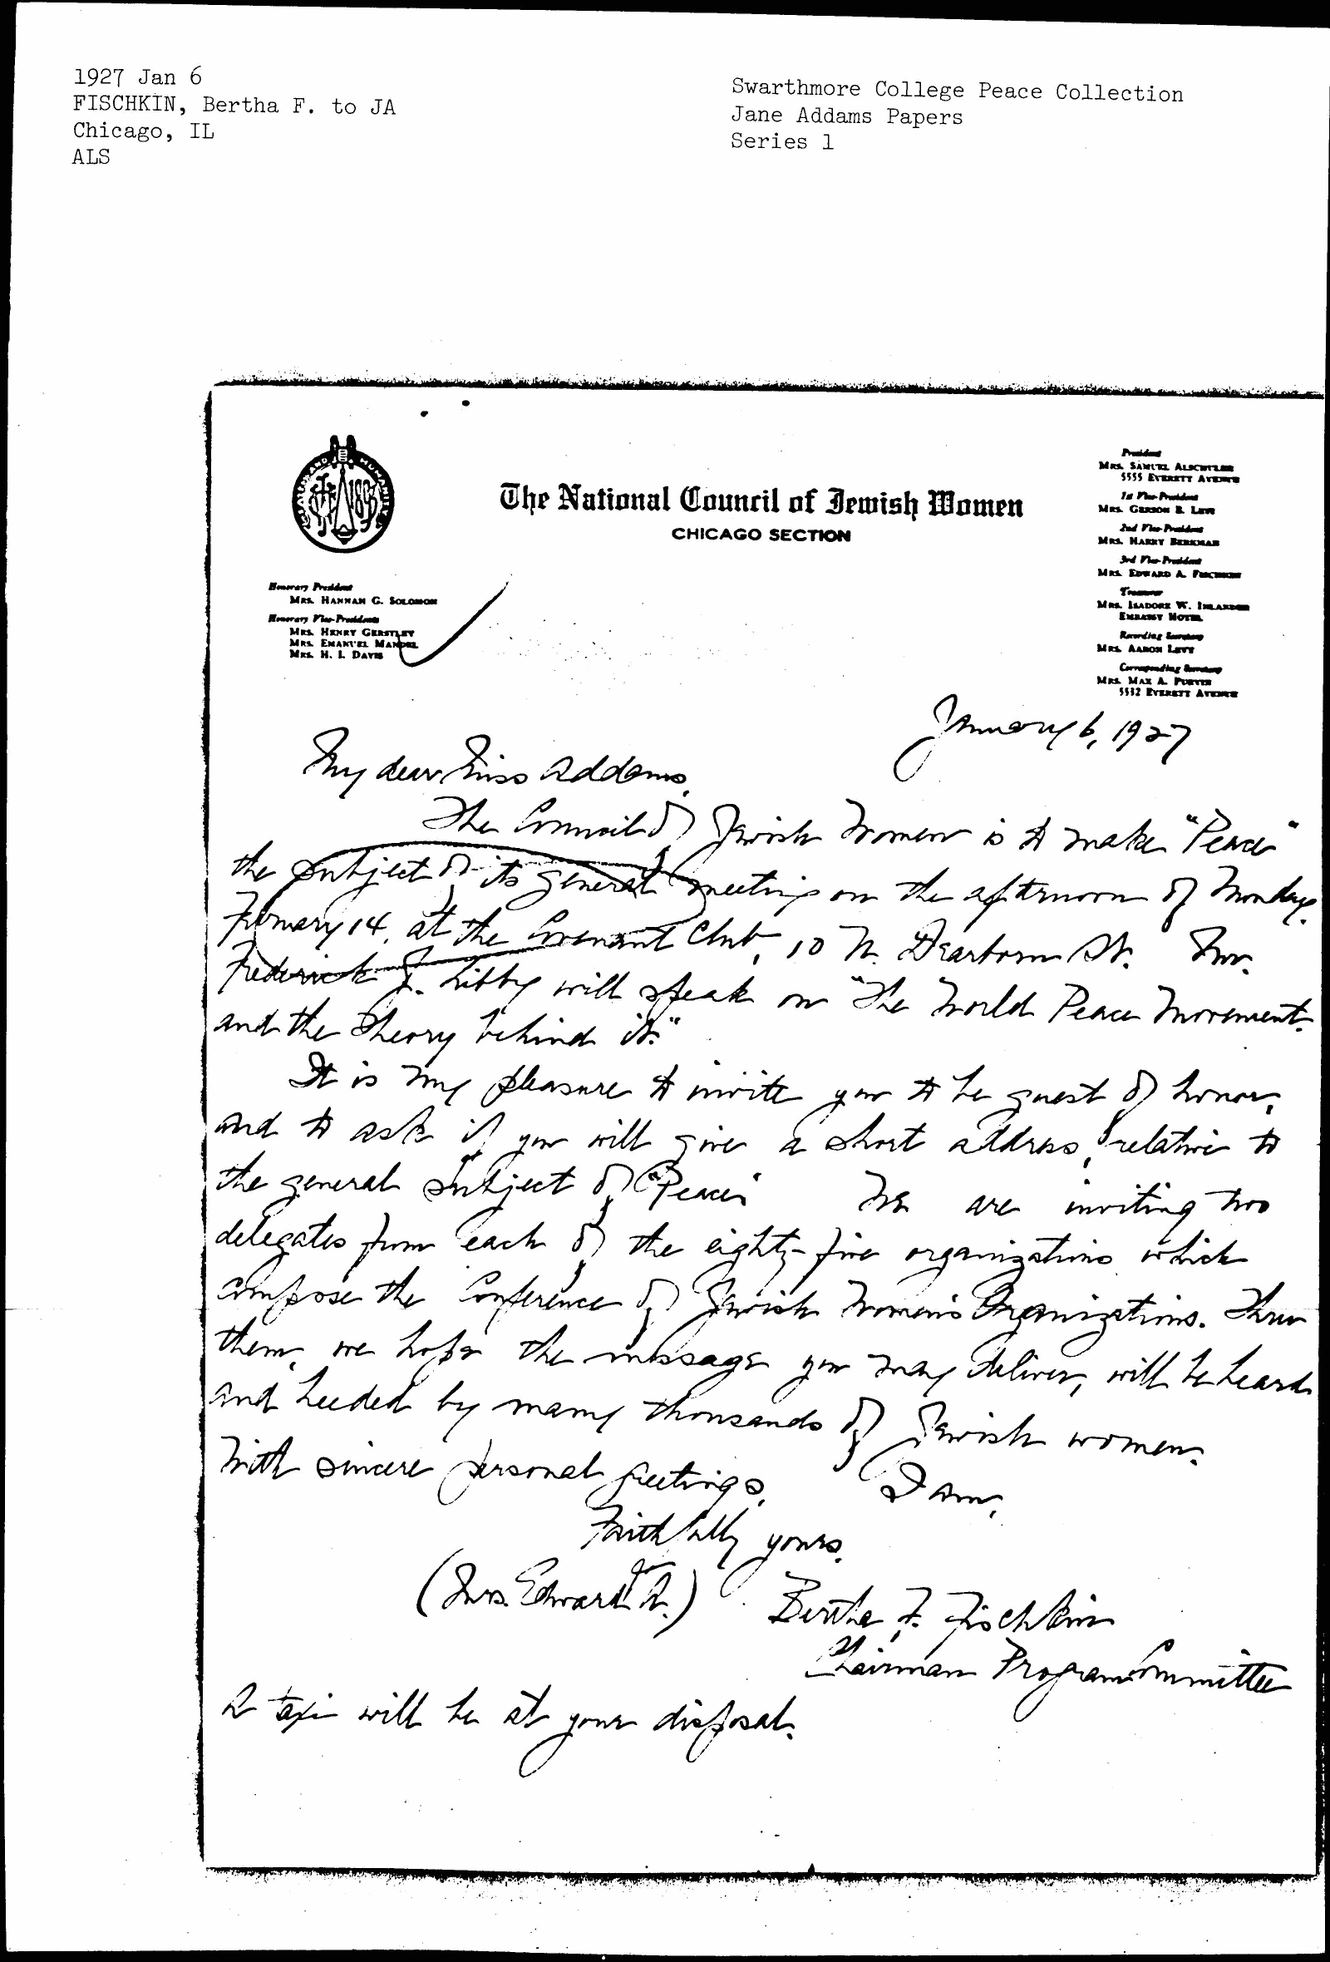 1927 Jan 6
FISCHKIN, Bertha F. to JA
Chicago, IL
ALS
Swarthmore College Peace Collection
Jane Addams Papers
Series 1
The National Council of Jewish Women
CHICAGO SECTION
1893
Honorary President
MRS. HANNAH G. SOLOMON
Honorary Vice-Presidents
MRS. HENRY GERSTLEY
MRS. EMANUEL MANDEL
MRS. H. I. DAVIS
President
MRS. SAMUEL ALSCHULER
5555 EVERETT AVENUE
1st Vice-President
MRS. GERSON B. LEVI
2nd Vice-President
MRS. HARRY BERKMAN
3rd Vice-President
MRS. EDWARD A. FISCHKIN
Treasurer
MRS. ISADORE W.
EMBASSY HOTEL
Recording Secretary
MRS. AARON LEVY
Corresponding Secretary
MRS. MAX A. PURVIN
5532 EVERETT AVENUE
January 6, 1927
My dear Miss Addams,
The Council of Jewish Women is to make "Peace"
the subject of its general meeting on the afternoon of Monday,
February 14, at the Covenant Club, 10 N. Dearborn St. Mr.
Frederick J. Libby will speak on "The World Peace Movement
and the Theory behind it."
It is my pleasure to invite you to be guest of honor,
and to ask if you will give a short address, relative to
the general subject of "Peace" We are inviting two
delegates from each of the eighty-five organizations which
compose the Conference of Jewish Women's Organizations. Thru
them, we hope the message you may deliver, will be heard
and heeded by many thousands of Jewish women.
With sincere personal greetings, I am,
Faithfully yours,
(Mrs. Edward A.) Bertha F. Fischkin
Chairman Program Committee
A taxi will be at your disposal.